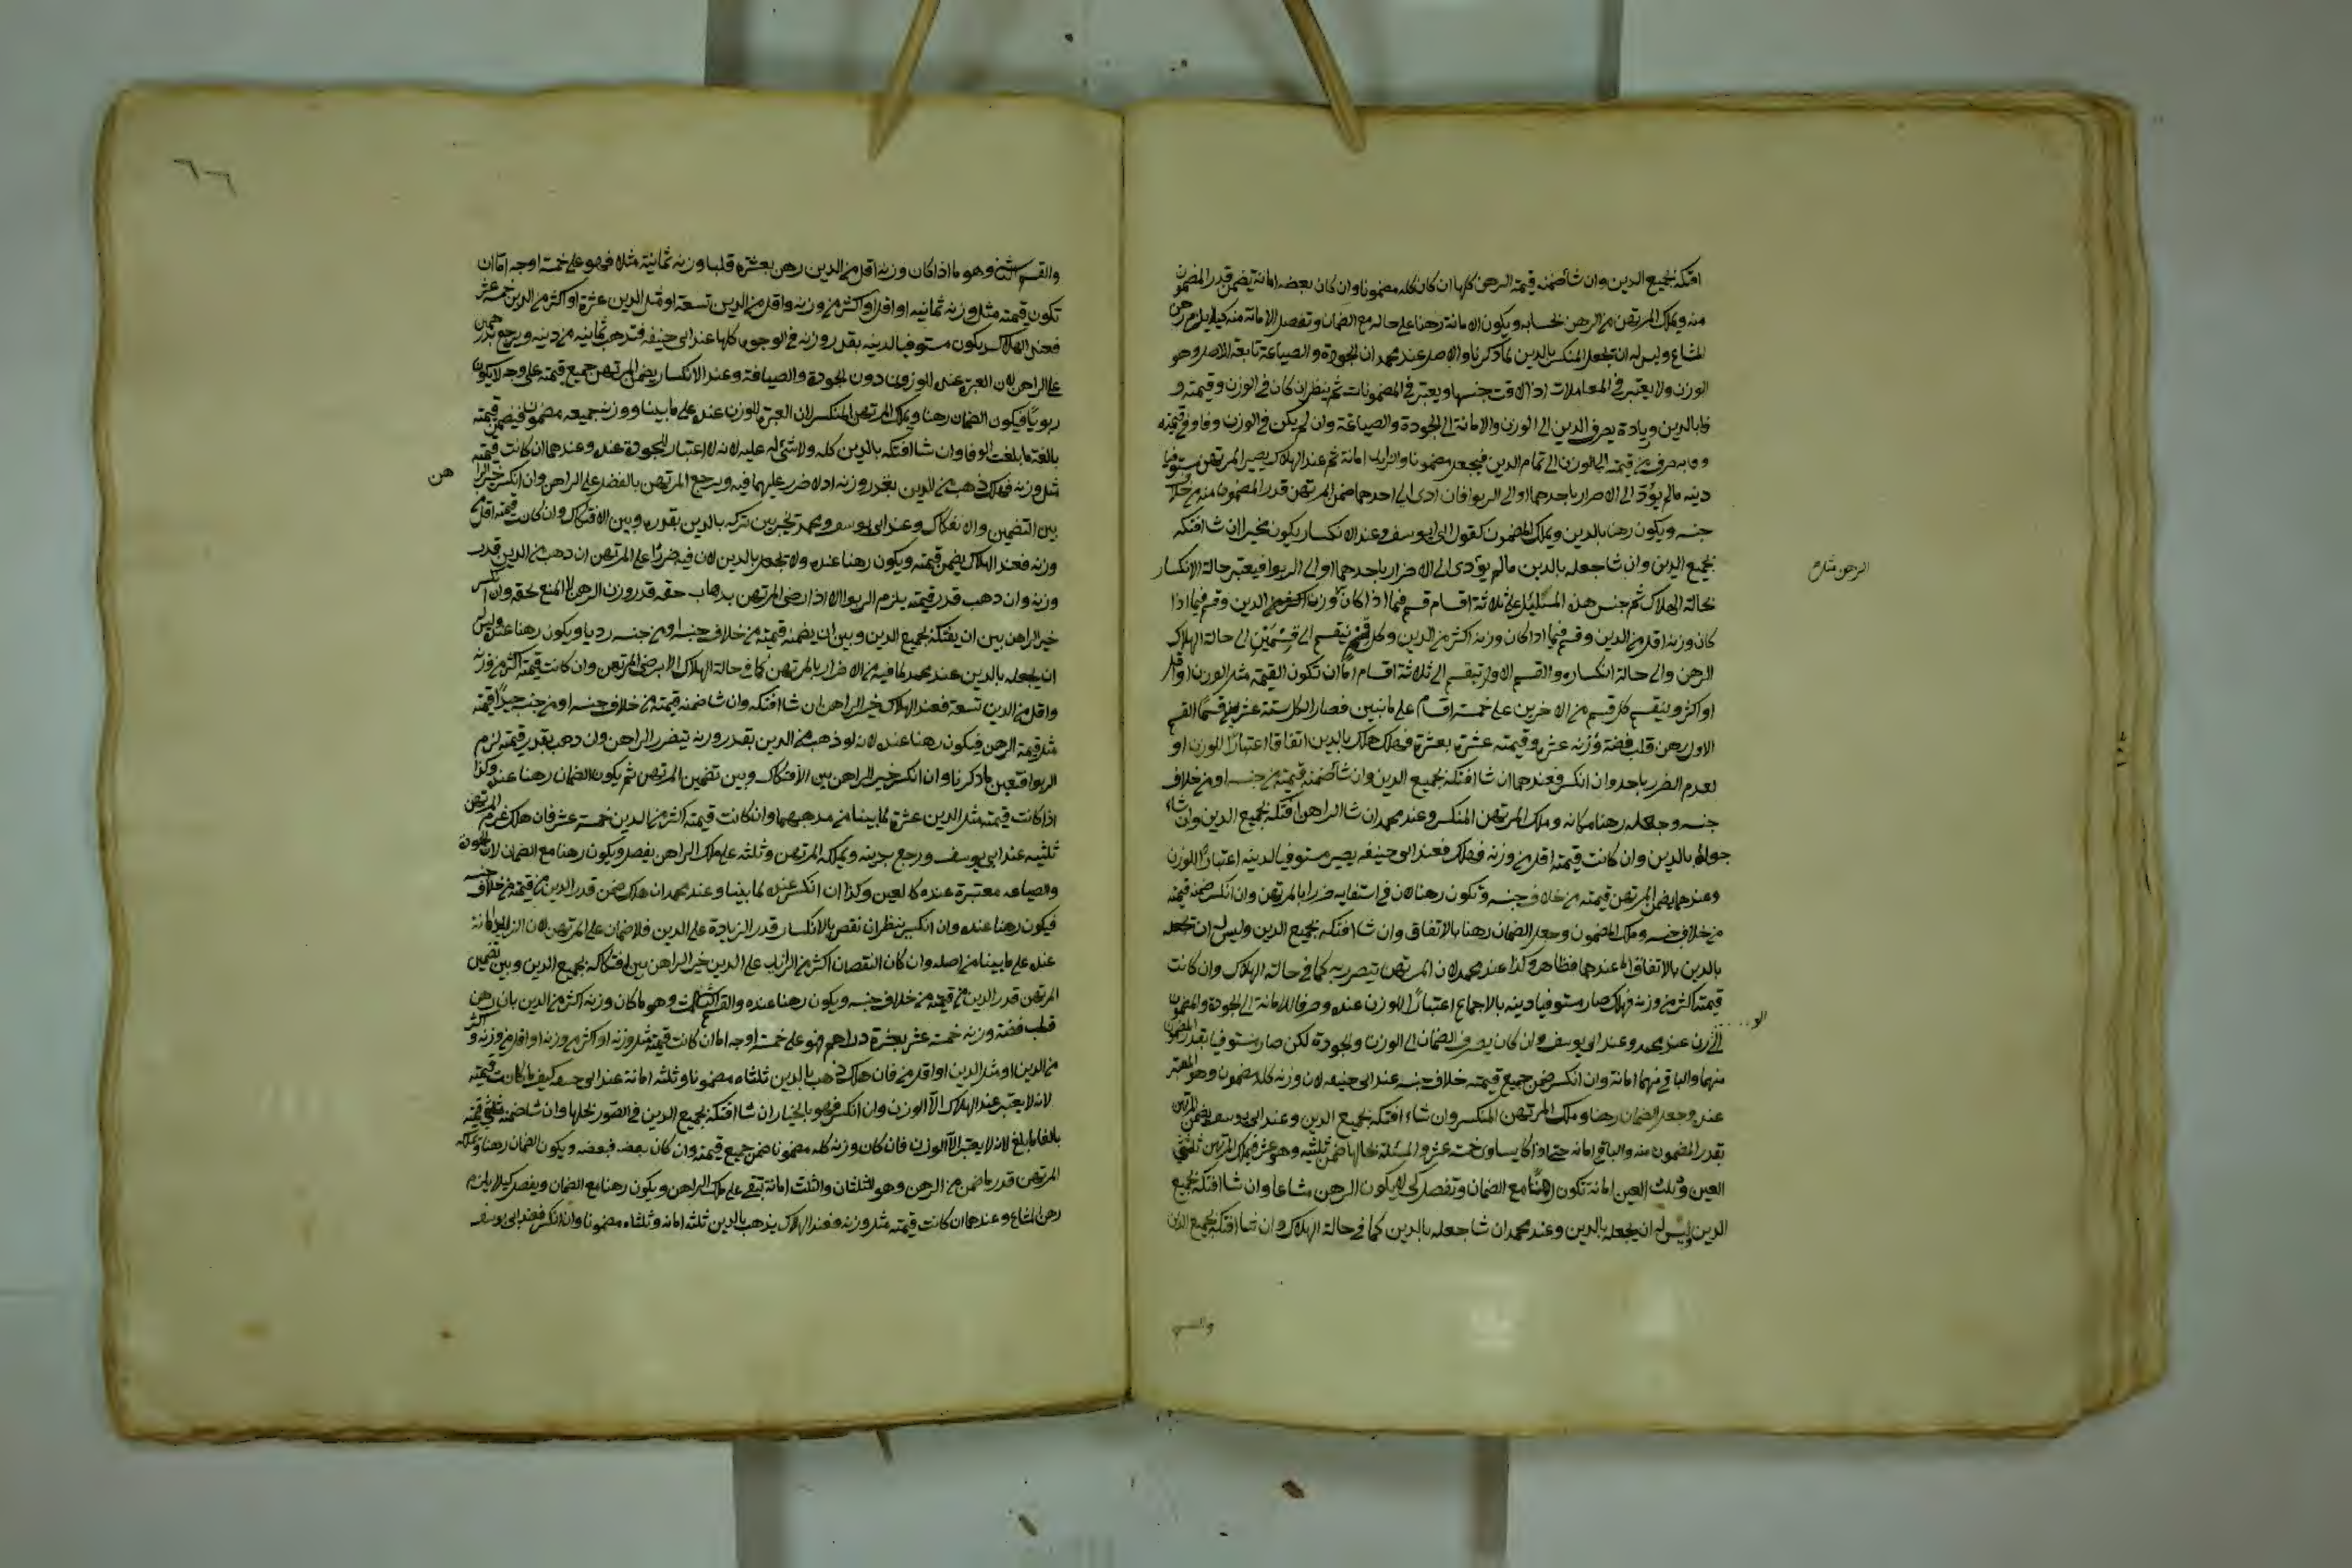 افتكه بجميع الدين وان شا ضمنه قيمة الرهن كلها ان كان كله مضمونا وان كان بعضه امانة يضمن قدر المضمون
منه ويملك المرتهن من الرهن بحسابه ويكون الامانة رهنا على حاله مع الضمان وتفصل الامانة منه كيلا يلزم رهن
المشاع وليس له ان يجعل المنكسر بالدين لما ذكرنا والاصل عند محمد ان الجودة والصياغة تابعة للاصل وهو
الوزن ولا يعتبر في المعاملات اذا لاقت جنسها ويعتبر في المضمونات ثم ينظر ان كان في الوزن وقيمته و
فا بالدين وزيادة يصرف الدين الى الوزن والامانة الى الجودة والصياغة وان لم يكن في الوزن وفا وفي قيمته
وفا به صرف من قيمته الى الوزن الى تمام الدين فيجعل مضمونا والزايد امانة ثم عند الهلاك يصير المرتهن مستوفيا
دينه مالم يؤدّ الى الاضرار باحدهما او الى الربوا فان ادى الى احدهما ضمن المرتهن قدر المضمون منه من خلاف
جنسه ويكون رهنا بالدين ويملك المضمون كقول ابي يوسف وعند الانكسار يكون مخيرا ان شا افتكه
بجميع الدين وان شا جعله بالدين مالم يؤدى الى الاضرار باحدهما او الى الربوا فيعتبر حالة الانكسار
بحالة الهلاك ثم جنس هذه المسئلة على ثلاثة اقسام قسم فيما اذا كان وزنه الدين وقسم فيما اذا
كان وزنه اقل من الدين وقسم فيما اذا كان وزنه اكثر من الدين وكل قسم ينقسم الى قسمين الى حالة الهلاك
الرهن والى حالة انكساره والقسم الاول ينقسم الى ثلاثة اقسام اما ان تكون القيمة مثل الوزن او اقل
او اكثر وينقسم كل قسم من الاخرين على خمسة اقسام على ما نبين فصار الكل ستة عشر قسما القسم
الاول رهن قلب فضة وزنه عشرة وقيمته عشرة بعشرة فهلك هلك بالدين اتفاقا اعتبارًا للوزن او
لعدم الضرر باحد وان انكسر فعندهما ان شا افتكه بجميع الدين وان شا ضمنه قيمته من جنسه او من خلاف
جنسه وجعله رهنا مكانه وملك المرتهن المنكسر وعند محمد ان شا الراهن افتكه بجميع الدين وان شاء
جعله بالدين وان كانت قيمته اقل من وزنه فهلك فعند ابي حنيفه يصير مستوفيا لدينه اعتبارًا للوزن
وعندهما يضمن المرتهن قيمته من خلاف جنسه وتكون رهنا لان في استفايه ضررا بالمرتهن وان انكسر ضمنه قيمته
من خلاف جنسه وملك المضمون وجعل الضمان رهنا بالاتفاق وان شا افتكه بجميع الدين وليس له ان يجعله
بالدين بالاتفاق اما عندهما فظاهر وكذا عند محمد لان المرتهن يتضرر به كما في حالة الهلاك وان كانت
قيمته اكثر من وزنه فهلك صار مستوفيا دينه بالاجماع اعتبارًا للوزن عنده وصرفا للامانة الى الجودة والمضمون
الى الوزن عند محمد وعند ابي يوسف وان كان يصرف الضمان الى الوزن والجودة لكن صار مستوفيا بقدر المضمون
منهما والباقي منهما امانة وان انكسر ضمن جميع قيمته خلاف جنسه عند ابي حنيفه لان وزنه كله مضمون وهو المعتبر
عنده وجعل الضمان رهنا وملك المرتهن المنكسر وان شاء افتكه بجميع الدين وعند ابي يوسف يضمن المرتهن
بقدر المضمون منه والباقي امانه حتى اذا كا يساوى خمسة عشر والمسئلة بحالها ضمن ثلثيه وهو عشرة فيملك المرتهن ثلثي
العين وثلث العين امانة تكون رهنًا مع الضمان وتفصل كي لا يكون الرهن مشاعا وان شا افتكه بجميع
الدين وليس له ان يجعله بالدين وعند محمد ان شا جعله بالدين كما في حالة الهلاك وان شا افتكه بجميع الدين
والقسم
الرهن مشاع
والقسم وهو ما اذا كان وزنه اقل من الدين رهن بعشرة قلبا وزنه ثمانية مثلا فهو على خمسة اوجه اما ان
تكون قيمته مثل وزنه ثمانيه او اقل او اكثر من وزنه واقل من الدين تسعة او مثل الدين عشرة او اكثر من الدين خمسة عشر
فعند الهلاك يكون مستوفيا لدينه بقدر وزنه في الوجوه كلها عند ابي حنيفه فتذهب ثمانيه من دينه ويرجع بدرهمين
على الراهن لان العبرة عنده للوزن دون الجودة والصياغة وعند الانكسار يضمن المرتهن جميع قيمته على وجه لا يكون
ربويًا فيكون الضمان رهنا ويملك المرتهن المنكسر لان العبرة للوزن عنده على ما بينا ووزنه جميعه مضمون فيضمن قيمته
بالغة ما بلغت الوفا وان شا افتكه بالدين كله ولا شئ له عليه لانه لا اعتبار للجودة عنده وعندهما ان كانت قيمته
مثل وزنه فهلك ذهب من الدين بقدر وزنه اذ لا ضرر عليهما فيه ويرجع المرتهن بالفضل على الراهن وان انكسر خير الراهن
بين التضمين والافتكاك وعند ابي يوسف ومحمد تخير بين تركه بالدين بقدره وبين الافتكاك وان كانت قيمته اقل من
وزنه فعند الهلاك يضمن قيمته ويكون رهنا عنده ولا يجعل بالدين لان فيه ضررًا على المرتهن ان ذهب من الدين قدر
وزنه وان ذهب قدر قيمته يلزم الربوا الا اذا رضى المرتهن بذهاب حقه قدر وزن الرهن لان المنع لحقه وان انكسر
خير الراهن بين ان يفتكه بجميع الدين وبين ان يضمنه قيمته من خلاف جنسه او من جنسه رديا ويكون رهنا عنده وليس
ان يجعله بالدين عند محمد لما فيه من الاضرار بالمرتهن كما في حالة الهلاك الا برضى المرتهن وان كانت قيمته اكثر من وزنه
واقل من الدين تسعة فعند الهلاك خير الراهن ان شا افتكه وان شا ضمنه قيمته من خلاف جنسه او من جنسه جيدًا قيمته
مثل قيمة الرهن فيكون رهنا عنده لان لو ذهب من الدين بقدر وزنه يتضرر الراهن وان ذهب بقدر قيمته لزم
الربوا فتعين ما ذكرنا وان انكسر خير الراهن بين الافتكاك وبين تضمين المرتهن ثم يكون الضمان رهنا عنده وكذا
اذا كانت قيمته مثل الدين عشرة لما بينا من مذهبهما وان كانت قيمته اكثر من الدين خمسة عشر فان هلك غرم المرتهن
ثلثيه عند ابي يوسف ورجع بدينه ويملكه المرتهن وثلثه على ملك الراهن يفصل ويكون رهنا مع الضمان لان الجودة
والصياغه معتبرة عنده كالعين وكذا ان انكسر عنده لما بينا وعند محمد ان هلك ضمن قدر الدين من قيمته من خلاف جنسه
فيكون رهنا عنده وان انكسر ينظر ان نقص بالانكسار قدر الزيادة على الدين فلا ضمان على المرتهن لان الزايد امانة
عنده على ما بينا من اصله وان كان النقصان اكثر من الزايد على الدين خير الراهن بين افتكاكه بجميع الدين وبين تضمين
المرتهن قدر الدين من قيمته من خلاف جنسه ويكون رهنا عنده والقسم الثالث وهو ما كان وزنه اكثر من الدين بان رهن
قلب فضة وزنه خمسة عشر بعشرة دراهم فهو على خمسة اوجه اما ان كانت قيمته مثل وزنه او اكثر من وزنه او اقل من وزنه واكثر
من الدين او مثل الدين او اقل منه فان هلك ذهب بالدين ثلثاه مضمونا وثلثه امانة عند ابي حنيفه كيف ما كانت قيمته
لانه لا يعتبر عند الهلاك الّا الوزن وان انكسر فهو بالخيار ان شا افتكه بجميع الدين في الصور كلها وان شا ضمنه ثلثي قيمته
بالغا ما بلغ لانه لا يعتبر الّا الوزن فان كان وزنه كله مضمونا ضمن جميع قيمته وان كان بعضه فبعضه ويكون الضمان رهنا وملك
المرتهن قدر ما ضمن من الرهن وهو الثلثان والثلث امانة تبقى على ملك الراهن ويكون رهنا مع الضمان ويفصل كيلا يلزم
رهن المشاع وعندهما ان كانت قيمته مثل وزنه فعند الهلاك يذهب بالدين ثلثه امانه وثلثاه مضمونا وان انكسر فعند ابي يوسف
هن
٦٦